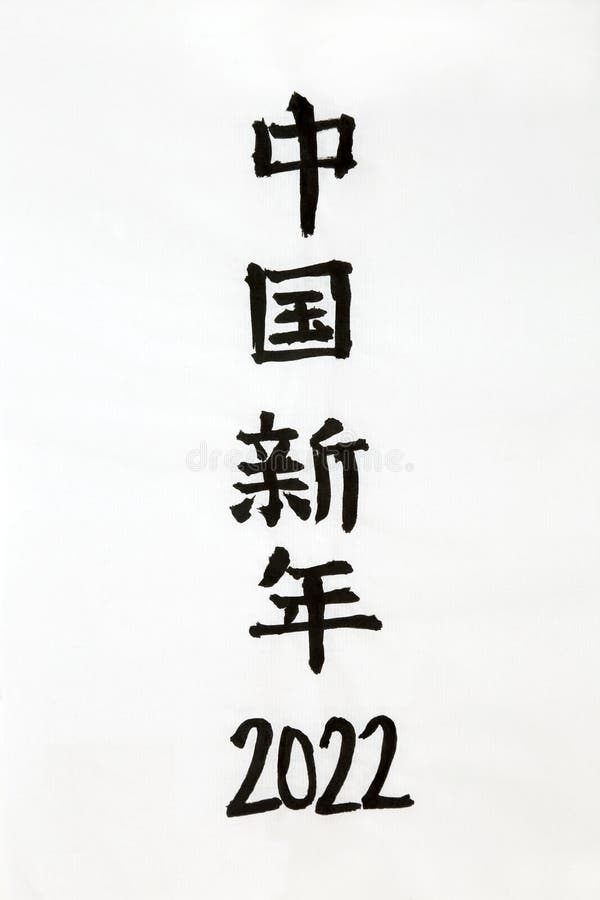 中
国
新
年
2022
dreamstime